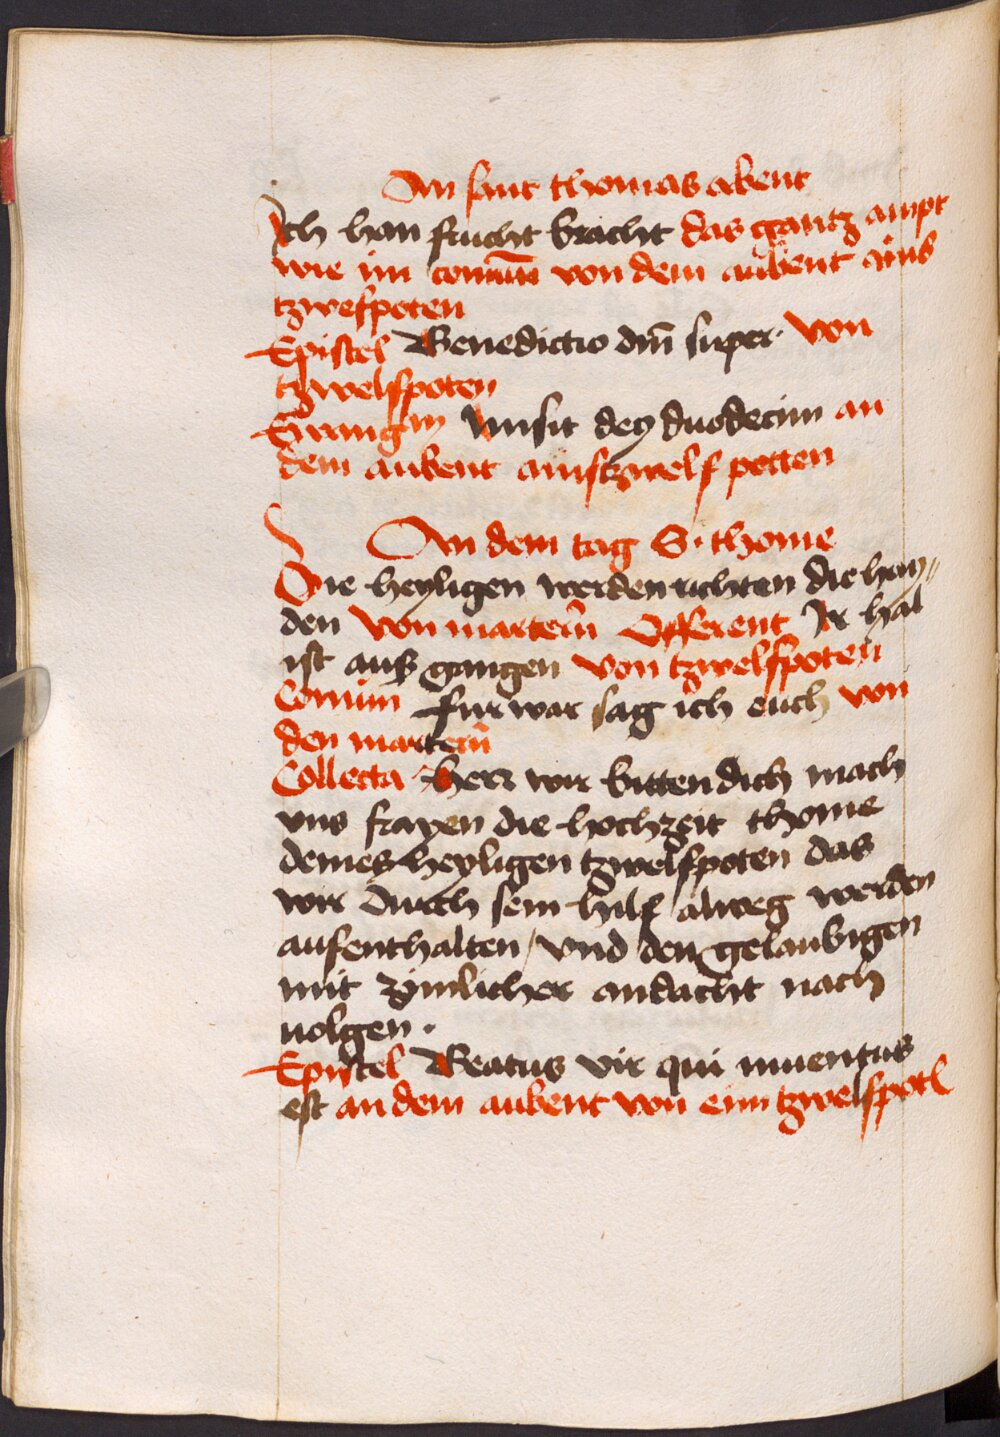 An sant thomas abent
Ich han frucht bracht das gantz ampt
wie im comūn von dem aubent ains
tzwefpoten
Epistel Benedictio dm̄ super von
tzwelfpoten
Ewangely Misit dey duodecim an
dem aubent ainstzwelf potten
An dem tag S. thome
Die heyligen werden richten die hay„
den von martern̄ Offerent Ir hal
ist auß gangen von tzwelfpoten
Comūn fur war sag ich euch von
den martern̄
Collecta Herr wir bitten dich mach
vns frayen die hochzeit thome
deines heyligen tzwelfpoten das
wir durch sein hilf alweg werden
aufenthalten / vnd den gelaubigen
mit zimlicher andacht nach
uolgen.
Epistel Beatus vir qui inuentus
est an dem aubent von eim tzwelfpotē